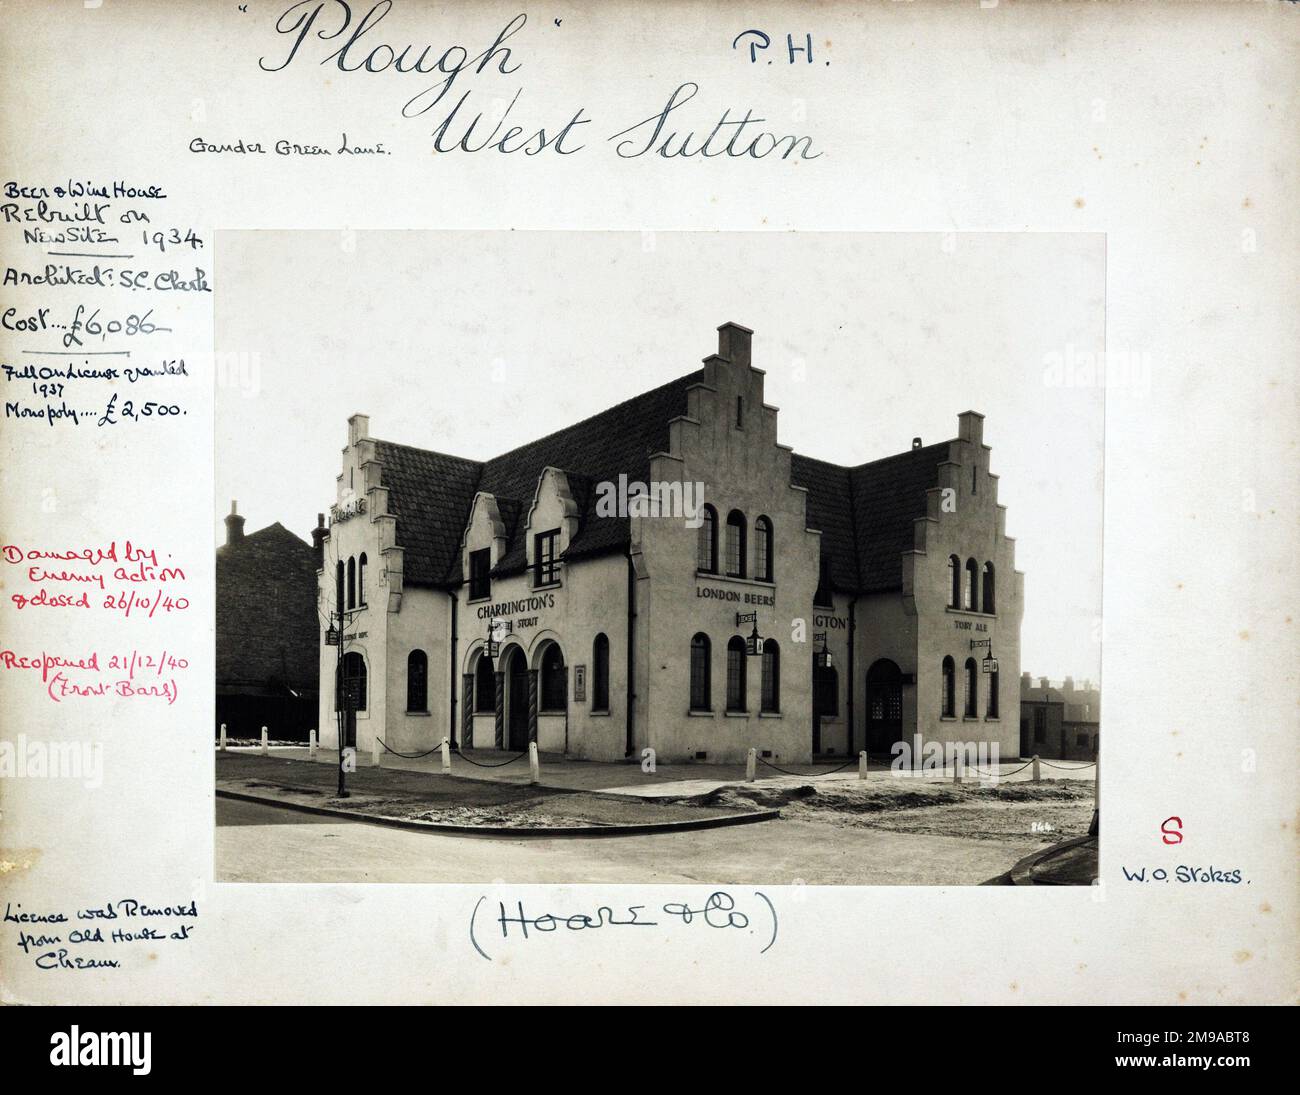 "Plough" P.H.
West Sutton
Gander Green Lane.
Beer & Wine House
Rebuilt on
New Site 1934.
Architect: S.C. Clark
Cost.... £6,086
Full On License granted
1937
Monopoly.... £2,500.
Damaged by
Enemy action
& closed 26/10/40
Reopened 21/12/40
(Front Bars)
Licence was Removed
from Old House at
Cheam.
CHARRINGTON'S
STOUT
LONDON BEERS
NGTON'S
TOBY ALE
844.
S
W.O. Stokes.
(Hoare & Co.)
alamy
Image ID: 2M9ABT8
www.alamy.com